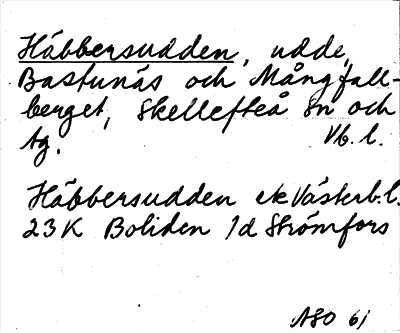 Häbbersudden, udde,
Bastunäs och Mångfall-
berget, Skellefteå sn och
tg. Vb. l.
Häbbersudden ek Västerb. l.
23K Boliden 1d Strömfors
ASO 61